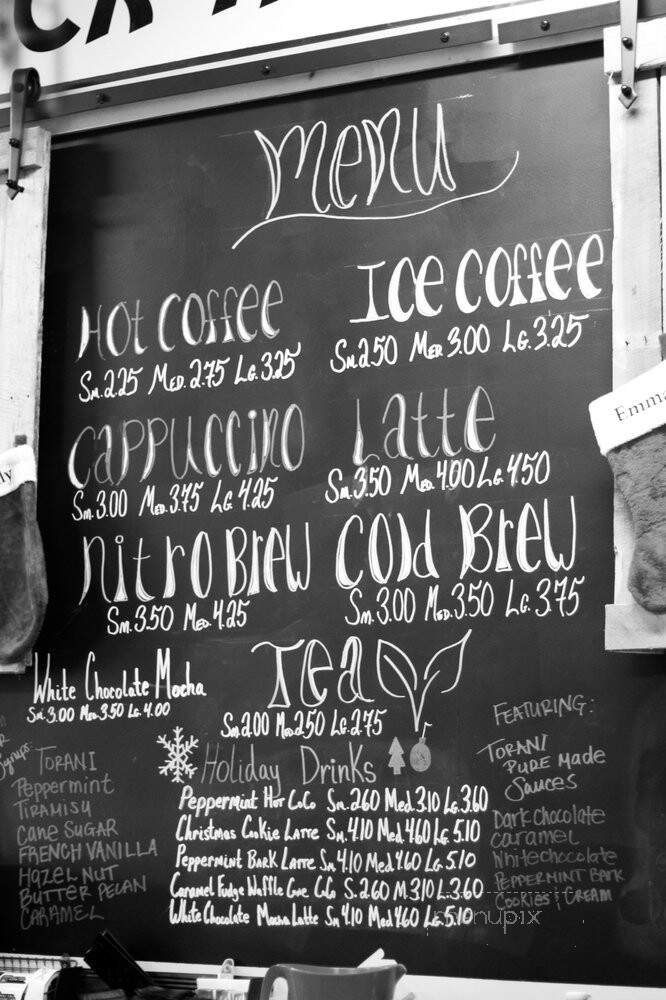 Menu
Hot Coffee
Sm. 2.25 Med. 2.75 Lg. 3.25
Ice Coffee
Sm 2.50 Med 3.00 Lg. 3.25
Cappuccino
Sm. 3.00 Med. 3.75 Lg. 4.25
Latte
Sm. 3.50 Med. 4.00 Lg. 4.50
Nitro Brew
Sm. 3.50 Med. 4.25
Cold Brew
Sm. 3.00 M. 3.50 Lg. 3.75
White Chocolate Mocha
Sm. 3.00 Med 3.50 Lg. 4.00
Tea
Sm 2.00 Med 2.50 Lg. 2.75
Syrups:
TORANI
Peppermint
TIRAMISU
CANE SUGAR
FRENCH VANILLA
HAZEL NUT
BUTTER PECAN
CARAMEL
Holiday Drinks
Peppermint Hot CoCo Sm 2.60 Med 3.10 Lg. 3.60
Christmas Cookie Latte Sm 4.10 Med 4.60 Lg. 5.10
Peppermint Bark Latte Sm 4.10 Med 4.60 Lg. 5.10
Caramel Fudge Waffle Cone CoCo S. 2.60 M. 3.10 L. 3.60
White Chocolate Mocha Latte Sm 4.10 Med 4.60 Lg. 5.10
FEATURING:
TORANI
PURE Made
Sauces
Dark chocolate
caramel
White chocolate
PEPPERMINT BARK
COOKIES & CREAM
Emma
menupix